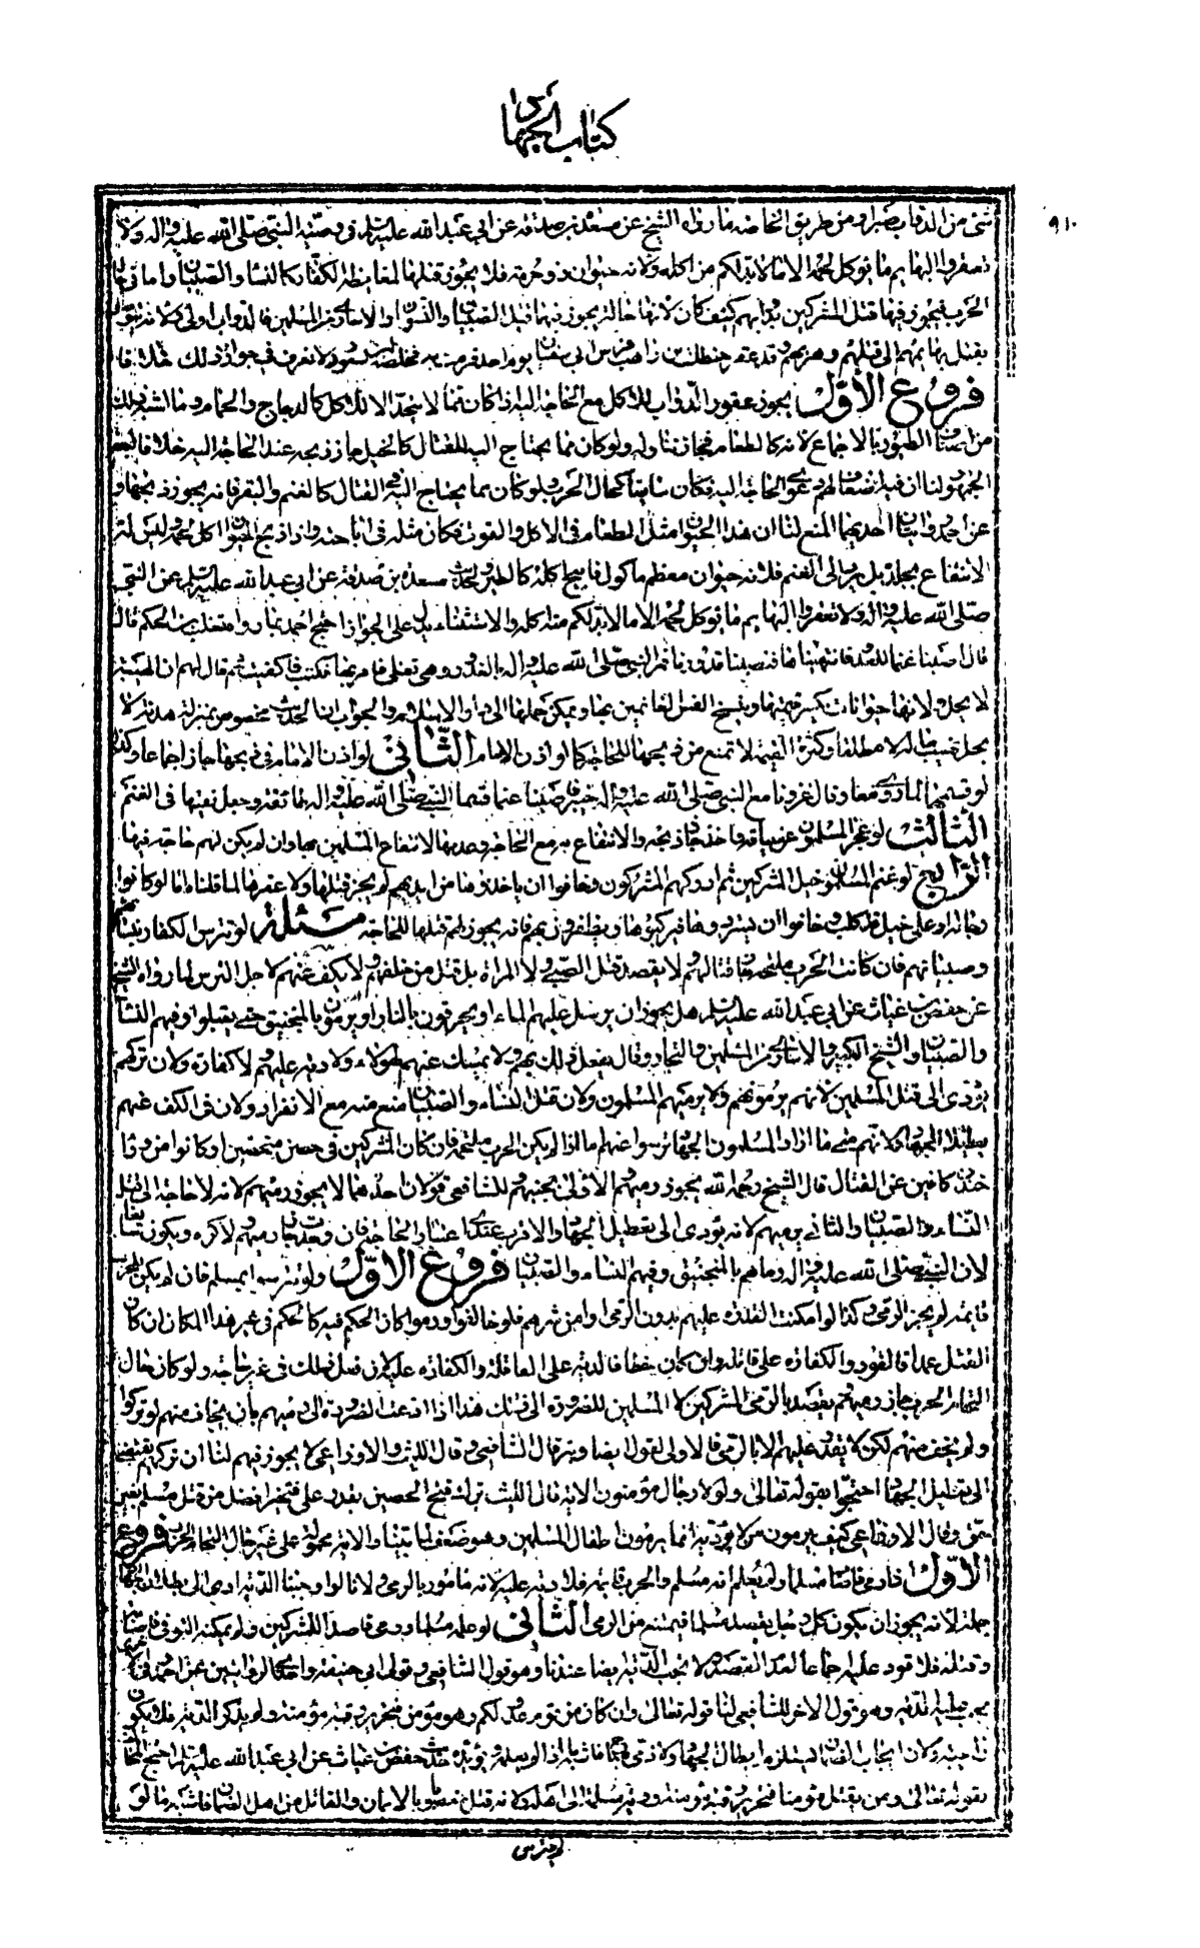 كتاب الجهاد
٩١٠
شئ من الدواب صبرا ومن طريق الخاصه ما رواه الشيخ عن مسعدة بن صدقة عن ابي عبد الله عليه السلم في وصية النبي صلى الله عليه واله ولا
تعقروا البهايم ما يوكل لحمه الا ما لا بد لكم من اكله ولانه حيوان ذو حرمة فلا يجوز قتلها لمغايظة الكفار كالنساء والصبيان واما في حال
الحرب فيجوز فيها قتل المشركين بدوابهم كيف كان لانها حالة يجوز فيها قتل الصبيان والنسوان والاسارى من المسلمين فالدواب اولى ولانه يتوصل
بقتل بهائمهم الى قتلهم وهزيمتهم وقد عقر حنظلة بن راهب فرس ابي سفيان يوم احد فرمت به فخلصه ابن شعوب ولا نعرف في جواز ذلك خلافا
فروع الأول يجوز عقور الدواب للاكل مع الحاجة اليه اذا كان مما لا يتخذ الا للاكل كالدجاج والحمام وما اشبه ذلك
من اصناف الطيور بالاجماع لانه كالطعام فيجاز تناوله ولو كان مما يحتاج اليه للقتال كالخيل جاز ذبحه عند الحاجة اليه خلافا لبعض
الجمهور لنا ان فيه نفعا لهم ودعوى الحاجة اليه فكان سائغا كحال الحرب ولو كان مما يحتاج اليه في القتال كالغنم والبقر فانه يجوز ذبحها و
عن احمد روايتان احديهما المنع لنا ان هذا الحيوان مثل الطعام في الاكل والقوت فكان مثله في اباحته واذا ذبح الحيوان اكل لحمه وليس له
الانتفاع بجلده بل يرد الى الغنم فلانه حيوان معظم ماكول فابيح اكله كالطير ولحديث مسعدة بن صدقة عن ابي عبد الله عليه السلم عن النبي
صلى الله عليه واله ولا تعقروا البهايم ما يوكل لحمه الا ما لا بد لكم منه اكله والاستثناء يدل على الجواز احتج احمد بما رواه ثعلبة بن الحكم قال
قال اصبنا غنما للعدو فانتهبناها فنصبنا قدورنا فمر النبي صلى الله عليه واله بالقدور وهي تغلي فامر بها فكفيت ثم قال لهم ان النهبة
لا يحل ولانها حيوانات كثيرة قيمتها ويشح انفس الغانمين بها ويمكن حملها الى دار الاسلام والجواب ان الحديث مخصوص
يحل نصيبا له لا مطلقا وكثرة القيمة لا تمنع من ذبحها للحاجة كما لو اذن الامام الثاني لو اذن الامام في ذبحها جاز اجماعا وكذا
لو قسمها لما روى معاذ قال غزونا مع النبي صلى الله عليه واله خيبر فاصبنا غنما فقسم النبي صلى الله عليه واله طائفة وجعل بقيتها في الغنم
الثالث لو عجز المسلمون عن سياقه واخذه جاز ذبحه والانتفاع به مع الحاجة وعدمها لانتفاع المسلمين بها وان لم يكن لهم حاجة فيها
الرابع لو غنم المسلمون خيل المشركين ثم ادركهم المشركون وخافوا ان ياخذوها من ايديهم لم يجز قتلها ولا عقرها لما قلناه اما لو كانوا
رجالة او على خيل قد كلت وخافوا ان يستردوها فيركبوها ويظفرون بهم فانه يجوز لهم قتلها للحاجة مسئلة لو تترس الكفار بنسائهم
وصبيانهم فان كانت الحرب ملتحمة جاز قتالهم ولا يقصد قتل الصبي ولا المراة بل قتل من خلفهم ولا يكف عنهم لاجل الترس لما رواه الشيخ
عن حفص بن غياث عن ابي عبد الله عليه السلم هل يجوز ان يرسل عليهم الماء او يحرقون بالنار او يرمون بالمنجنيق حتى يقتلوا وفيهم النساء
والصبيان والشيخ الكبير والاسارى من المسلمين والتجار وقال يفعل ذلك بهم ولا يمسك عنهم لهولاء ولا دية عليهم ولا كفارة ولان تركهم
يؤدى الى قتل المسلمين لانهم يرمونهم ولا يرميهم المسلمون ولان قتل النساء والصبيان منع منه مع الانفراد ولان في الكف عنهم
تعطيلا للجهاد لانهم متى ما اراد المسلمون الجهاد تترسوا عنهم اما اذا لم يكن الحرب ملتحمة فان كان المشركين في حصن متحصنين او كانوا من وراء
خندق كافين عن القتال قال الشيخ رحمه الله يجوز رميهم والاولى تجنبهم للشافعي قولان احدهما لا يجوز رميهم لانه لا حاجة الى قتل
النساء والصبيان والثاني يرميهم لانه يؤدى الى تعطيل الجهاد والاقرب عندى اعتبار الحاجة
لان النبي صلى الله عليه واله رماهم بالمنجنيق وفيهم النساء والصبيان فروع الأول ولو تترسوا بمسلم فان لم يكن الحرب
قائمة لم يجز الرمى وكذا لو امكنت القدرة عليهم بدون الرمى او امن شرهم فلو خالفوا ورموا كان الحكم فيه كالحكم في غير هذا المكان ان كان
القتل عمدا فالقود والكفارة على قاتله وان كان خطا فالدية على العاقلة والكفارة عليه لانه فعل ذلك في غير حاجة ولو كان حال
التحام الحرب جاز رميهم يقصد بالرمى المشركين لا المسلمين للضرورة الى ذلك هذا اذا دعت الضرورة الى رميهم بان يخاف منهم لو تركوا
ولو لم يخف منهم لكن لا يقدر عليهم الا بالرمى فالاولى القول ايضا وبه قال الشافعي وقال الليث والاوزاعى لا يجوز رميهم لنا ان تركهم يفضى
الى تعطيل الجهاد احتجوا بقوله تعالى ولولا رجال مؤمنون الاية قال الليث ترك فتح الحصين يقدر على فتحه افضل من قتل مسلم بغير
حق وقال الاوزاعى كيف يرمون من لا يرونه انما يرمون اطفال المسلمين وهو ضعف لما بينا والاية محمولة على غير حال التحام الحرب فروع
الأول اذا رمى فاصاب مسلما ولم يعلم انه مسلم والحرب قائمة فلا دية عليه لانه مامور بالرمى ولانا لو اوجبنا الدية ادى الى بطلان الجهاد
جملة لانه يجوز ان يكون كل رجل يقصده مسلما فيمتنع من الرمى الثاني لو علمه مسلما ورمى قاصدا للمشركين ولم يمكنه التوقى فاصابه
وقتله فلا قود عليه اجماعا لفقد القصد ولا يجب الدية ايضا عندنا وهو قول الشافعي وقول ابي حنيفة واحدى الروايتين عن احمد
يجب عليه الدية وهو قول الاخر للشافعي لنا قوله تعالى وان كان من قوم عدو لكم وهو مؤمن فتحرير رقبة مؤمنة ولم يذكر الدية فلا يكون
واجبة ولان ايجاب الضمان يستلزم ابطال الجهاد ويؤيده حديث حفص بن غياث عن ابي عبد الله عليه السلم احتج المخالف
بقوله تعالى ومن يقتل مؤمنا فتحرير رقبة مؤمنة ودية مسلمة الى اهله ولانه قتل معصوما بالايمان والقاتل من اهل الضمان فاشبه ما لو
لم يترس